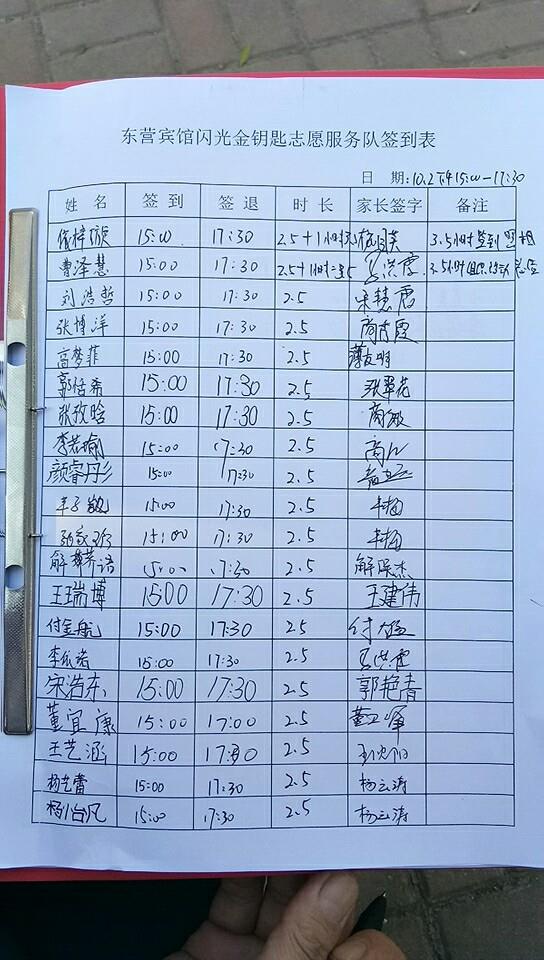 东营宾馆闪光金钥匙志愿服务队签到表
日 期:10.2下午15:00-17:30
姓 名 签 到 签 退 时 长 家长签字 备注
15:00 17:30 2.5+1小时 3.5小时签到照相
曹泽慧 15:00 17:30 2.5+1小时 3.5小时
刘浩哲 15:00 17:30 2.5 宋慧君
张博洋 15:00 17:30 2.5 商青霞
高梦菲 15:00 17:30 2.5 薄友明
郭恬希 15:00 17:30 2.5 张翠花
张玫晗 15:00 17:30 2.5 商敏
李若瑜 15:00 17:30 2.5
颜睿彤 15:00 17:30 2.5
15:00 17:30 2.5
15:00 17:30 2.5
解 语 15:00 17:30 2.5 解保杰
王瑞博 15:00 17:30 2.5 王建伟
付金航 15:00 17:30 2.5
李依诺 15:00 17:30 2.5
宋浩东 15:00 17:30 2.5 郭艳青
董宜康 15:00 17:00 2.5 董卫军
王艺涵 15:00 17:30 2.5
杨艺蕾 15:00 17:30 2.5 杨云涛
杨怡凡 15:00 17:30 2.5 杨云涛